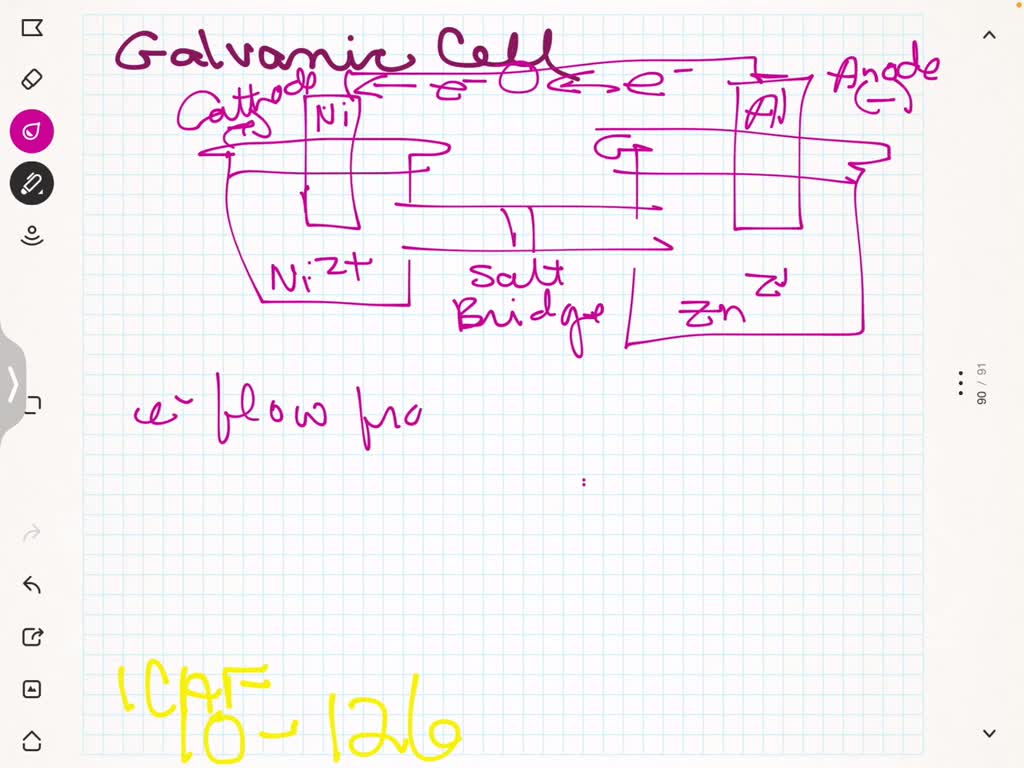 Galvanic Cell
Cathode
(+)
Ni
e⁻
e⁻
Al
Anode
(−)
Ni²⁺
Salt
Bridge
Zn
e⁻ flow fro
ICAF
10-126
90 / 91